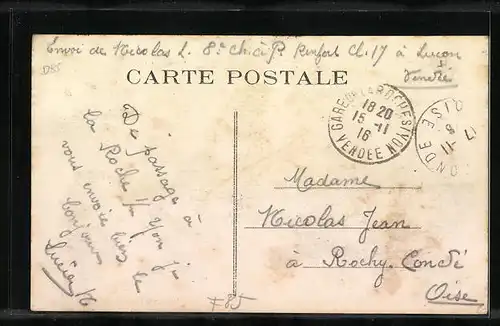 Envoi de Nicolas L. 8e Ch. à P. Renfort Cl. 17 à Luçon
Vendée
D85
CARTE POSTALE
De passage à
la Roche s/ Yon je
vous envoie bien le
bonjour
Lucien N
GARE DE LA ROCHE S/YON
18 20
15-11
16
VENDEE
OISE
17-11
Madame
Nicolas Jean
à Rochy-Condé
Oise
F85